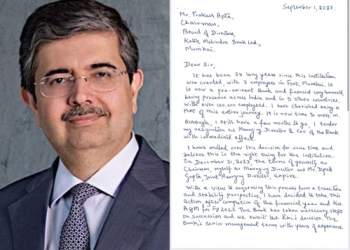 September 1, 2023
Mr. Prakash Apte,
Chairman,
Board of Directors,
Kotak Mahindra Bank Ltd,
Mumbai.
Dear Sir,
It has been 38 long years since this institution
was created, with 3 employees in Fort, Mumbai. It
is now a pre-eminent Bank and financial conglomerate,
having presence across India and in 5 other countries,
with over 100,000 employees. I have cherished every
part of this entire journey. It is now time to move on.
Although, I still have a few months to go, I tender
my resignation as Managing Director & CEO of the Bank
with immediate effect.
I have mulled over this decision for some time and
believe this is the right thing for the institution.
On December 31, 2023, the terms of yourself as
Chairman, myself as Managing Director and Mr. Dipak
Gupta, Joint Managing Director, expire.
With a view to sequencing this process from a transition
and stability perspective, I have decided to take this
action after completion of the financial year and the
AGM for FY 2023. The Bank has taken necessary steps
on succession and we await the RBI's decision. The
Bank's senior management team with years of experience